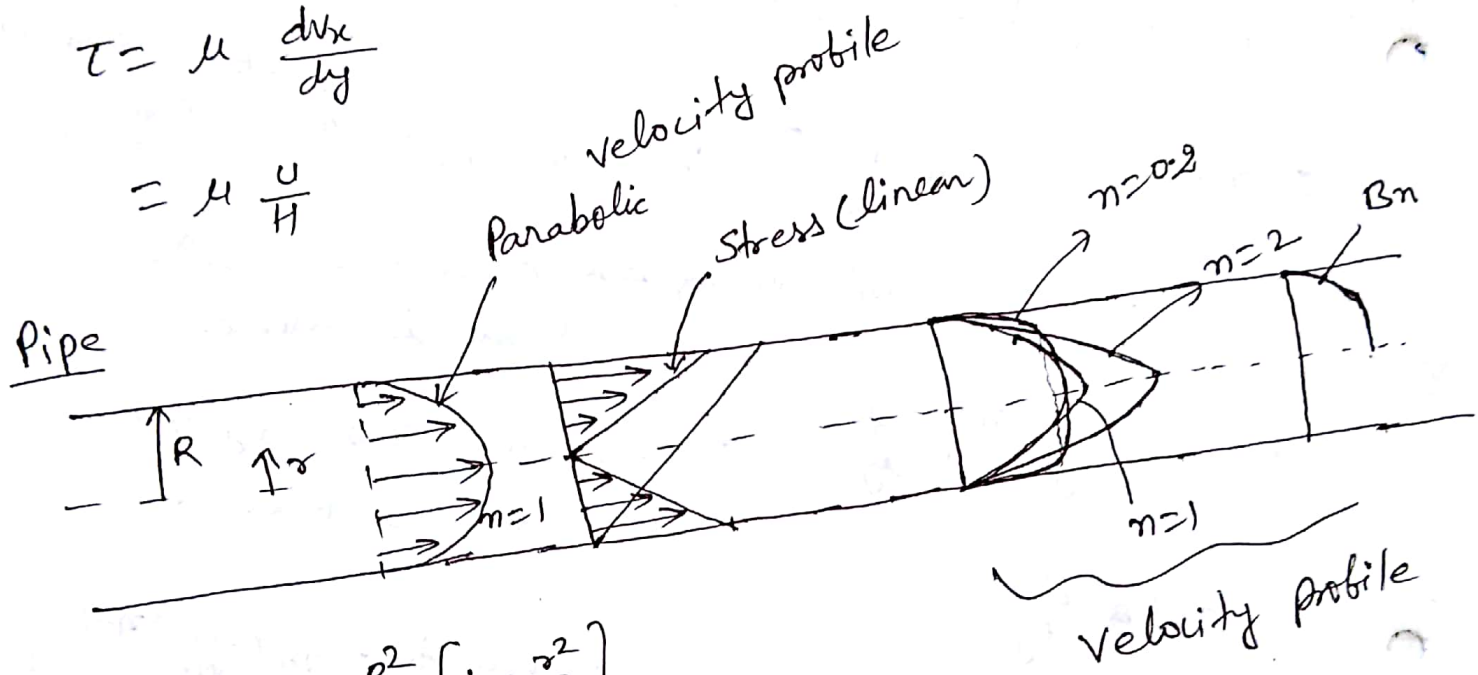 τ = μ dvx/dy
= μ U/H
velocity profile
Parabolic
Stress (linear)
n=0.2
n=2
Bn
Pipe
R
r
n=1
n=1
velocity profile
R² [1 - r²]